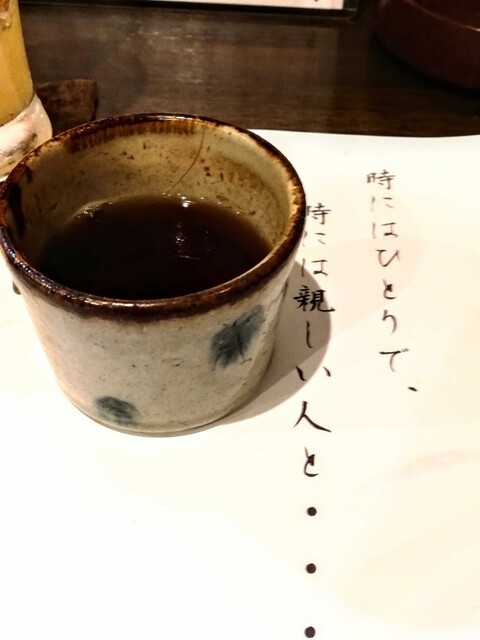 時にはひとりで、
時には親しい人と・・・